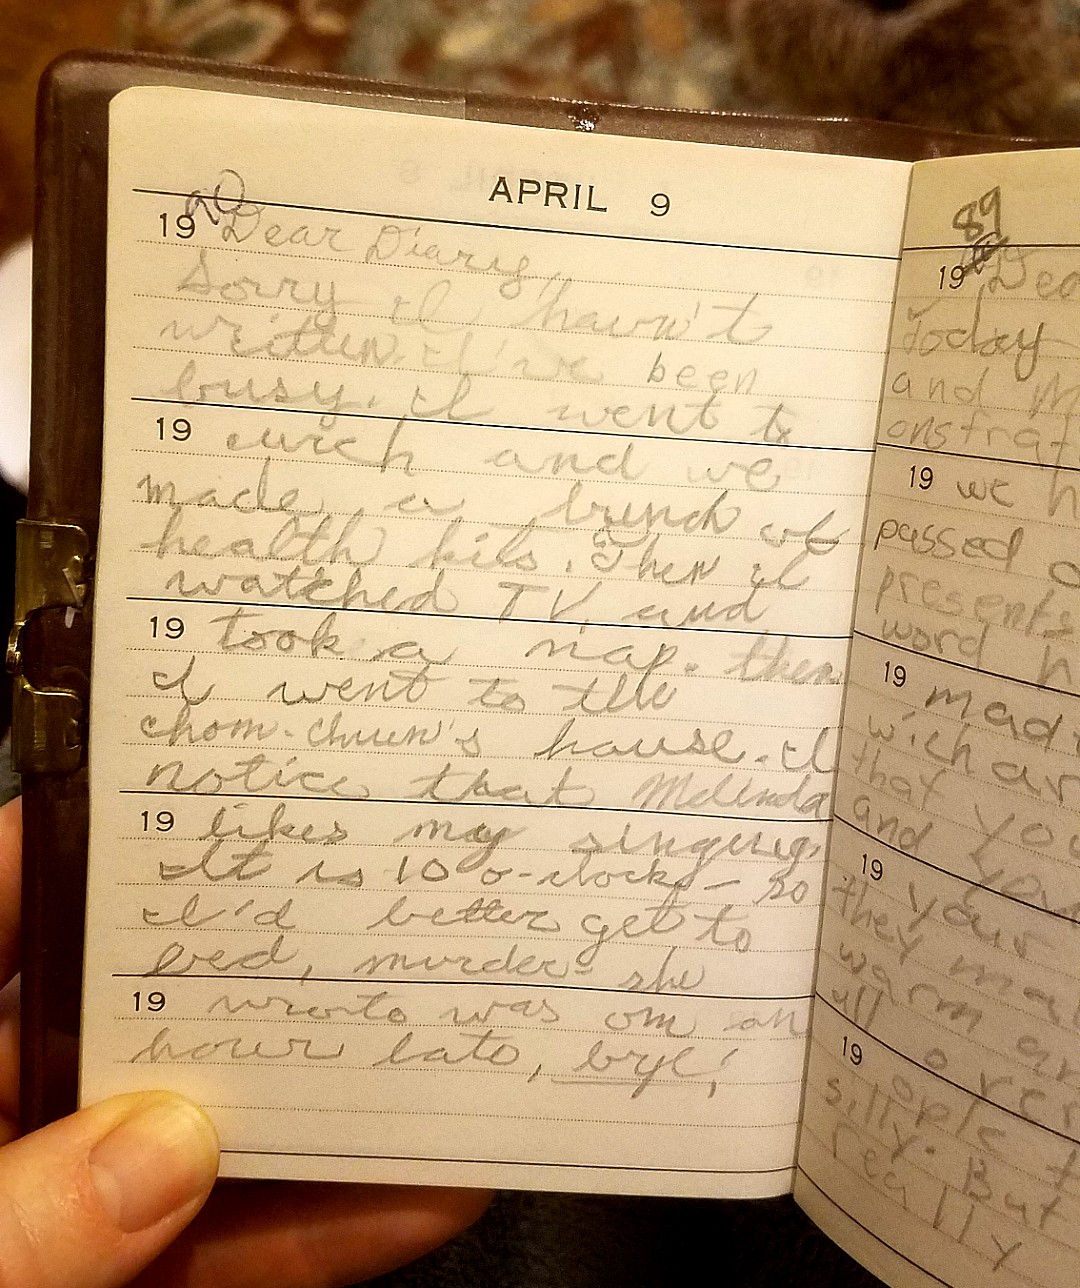 APRIL 9
19 Dear Diary,
Sorry I havn't
written. I've been
busy. I went to
19 curch and we
made a bunch of
health kits. Then I
watched TV. and
19 took a nap. then
I went to the
chom-chuen's house. I
notice that Melinda
19 likes my singing.
It is 10 o-clock, - so
I'd better get to
bed, murder- she
19 wroto was om an
hour lato, bye!
89
19 Dea
Today
and M
onstrat
19 we h
passed
presents
word h
19 mad
wich ar
that you
and you
19 your
they ma
warm an
all over
19 ople t
silly. But
really